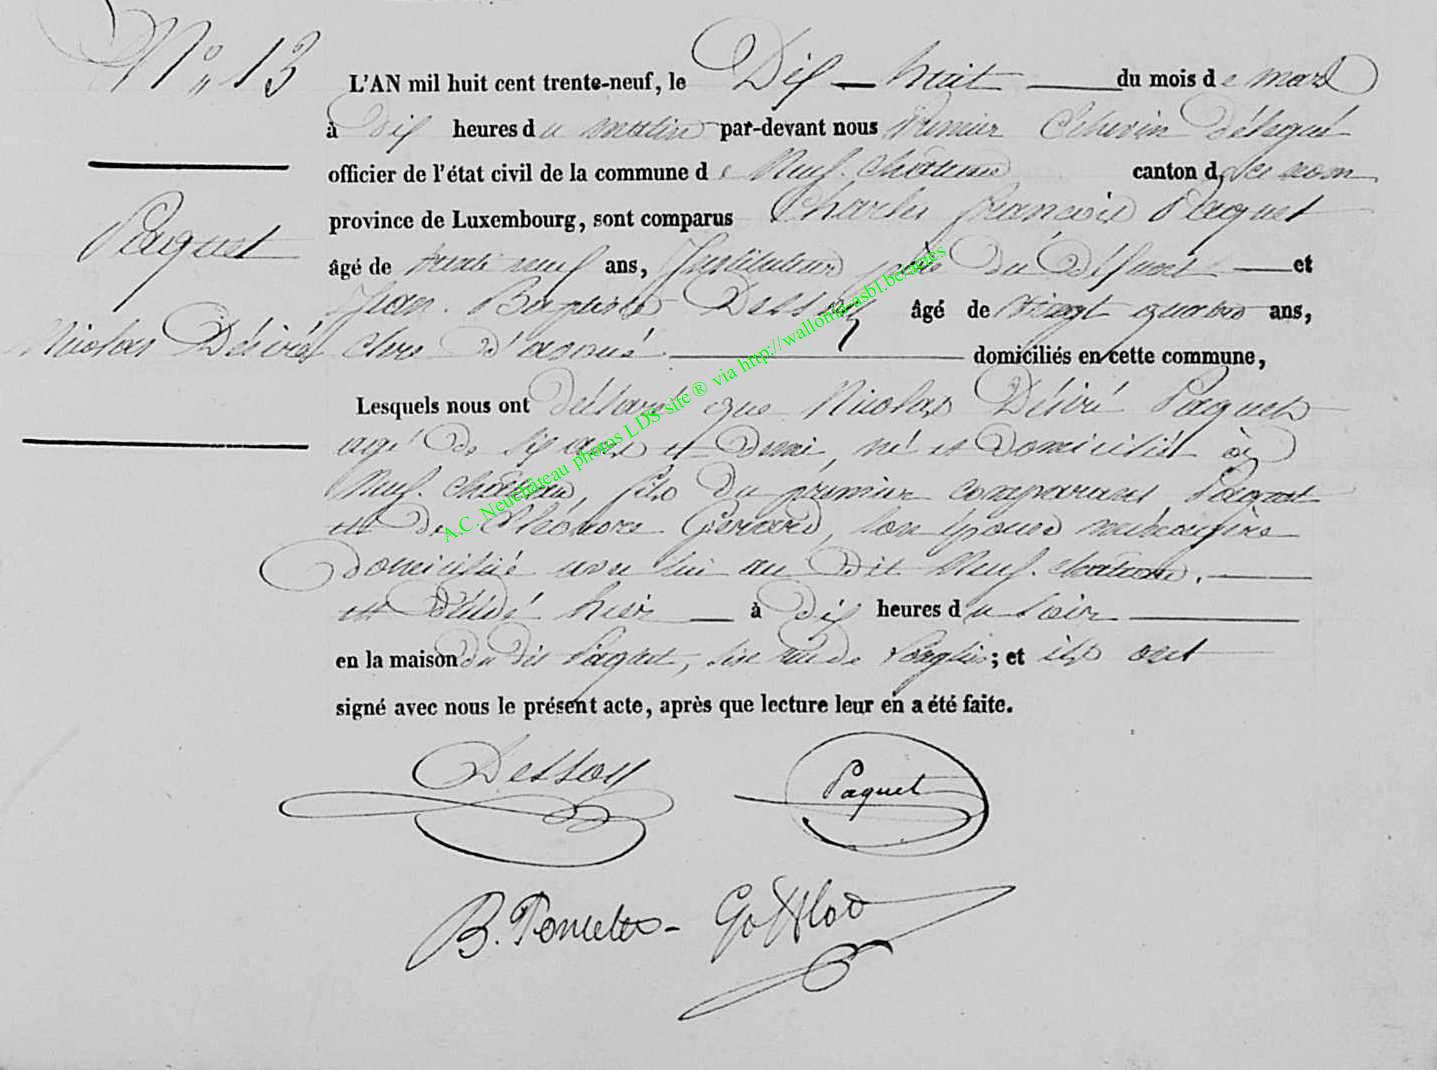 N° 13
L'AN mil huit cent trente-neuf, le Dix-huit du mois de mars
à dix heures du matin par-devant nous Premier Echevin délégué
officier de l'état civil de la commune de Neufchâteau canton de ce nom
province de Luxembourg, sont comparus Charles françois Paquet
Paquet
âgé de trente neuf ans, Instituteur père du défunt et
Jean Baptiste Dessoy âgé de vingt quatre ans,
Nicolas Désiré
Clerc d'avoué domiciliés en cette commune,
Lesquels nous ont déclaré que Nicolas Désiré Paquet
agé de six ans et demi, né et domicilié à
Neufchâteau, fils du premier comparant Paquet
et de Eléonore Gerard, son épouse ménagère
domiciliée avec lui au dit Neufchâteau.
est décédé hier à dix heures du soir
en la maison du dit Paquet, sise rue de ; et ils ont
signé avec nous le présent acte, après que lecture leur en a été faite.
Dessoy Paquet
B. Poncelet
A.C. Neuchâteau photos LDS site ® via http://wallonia-asbl.be/actes